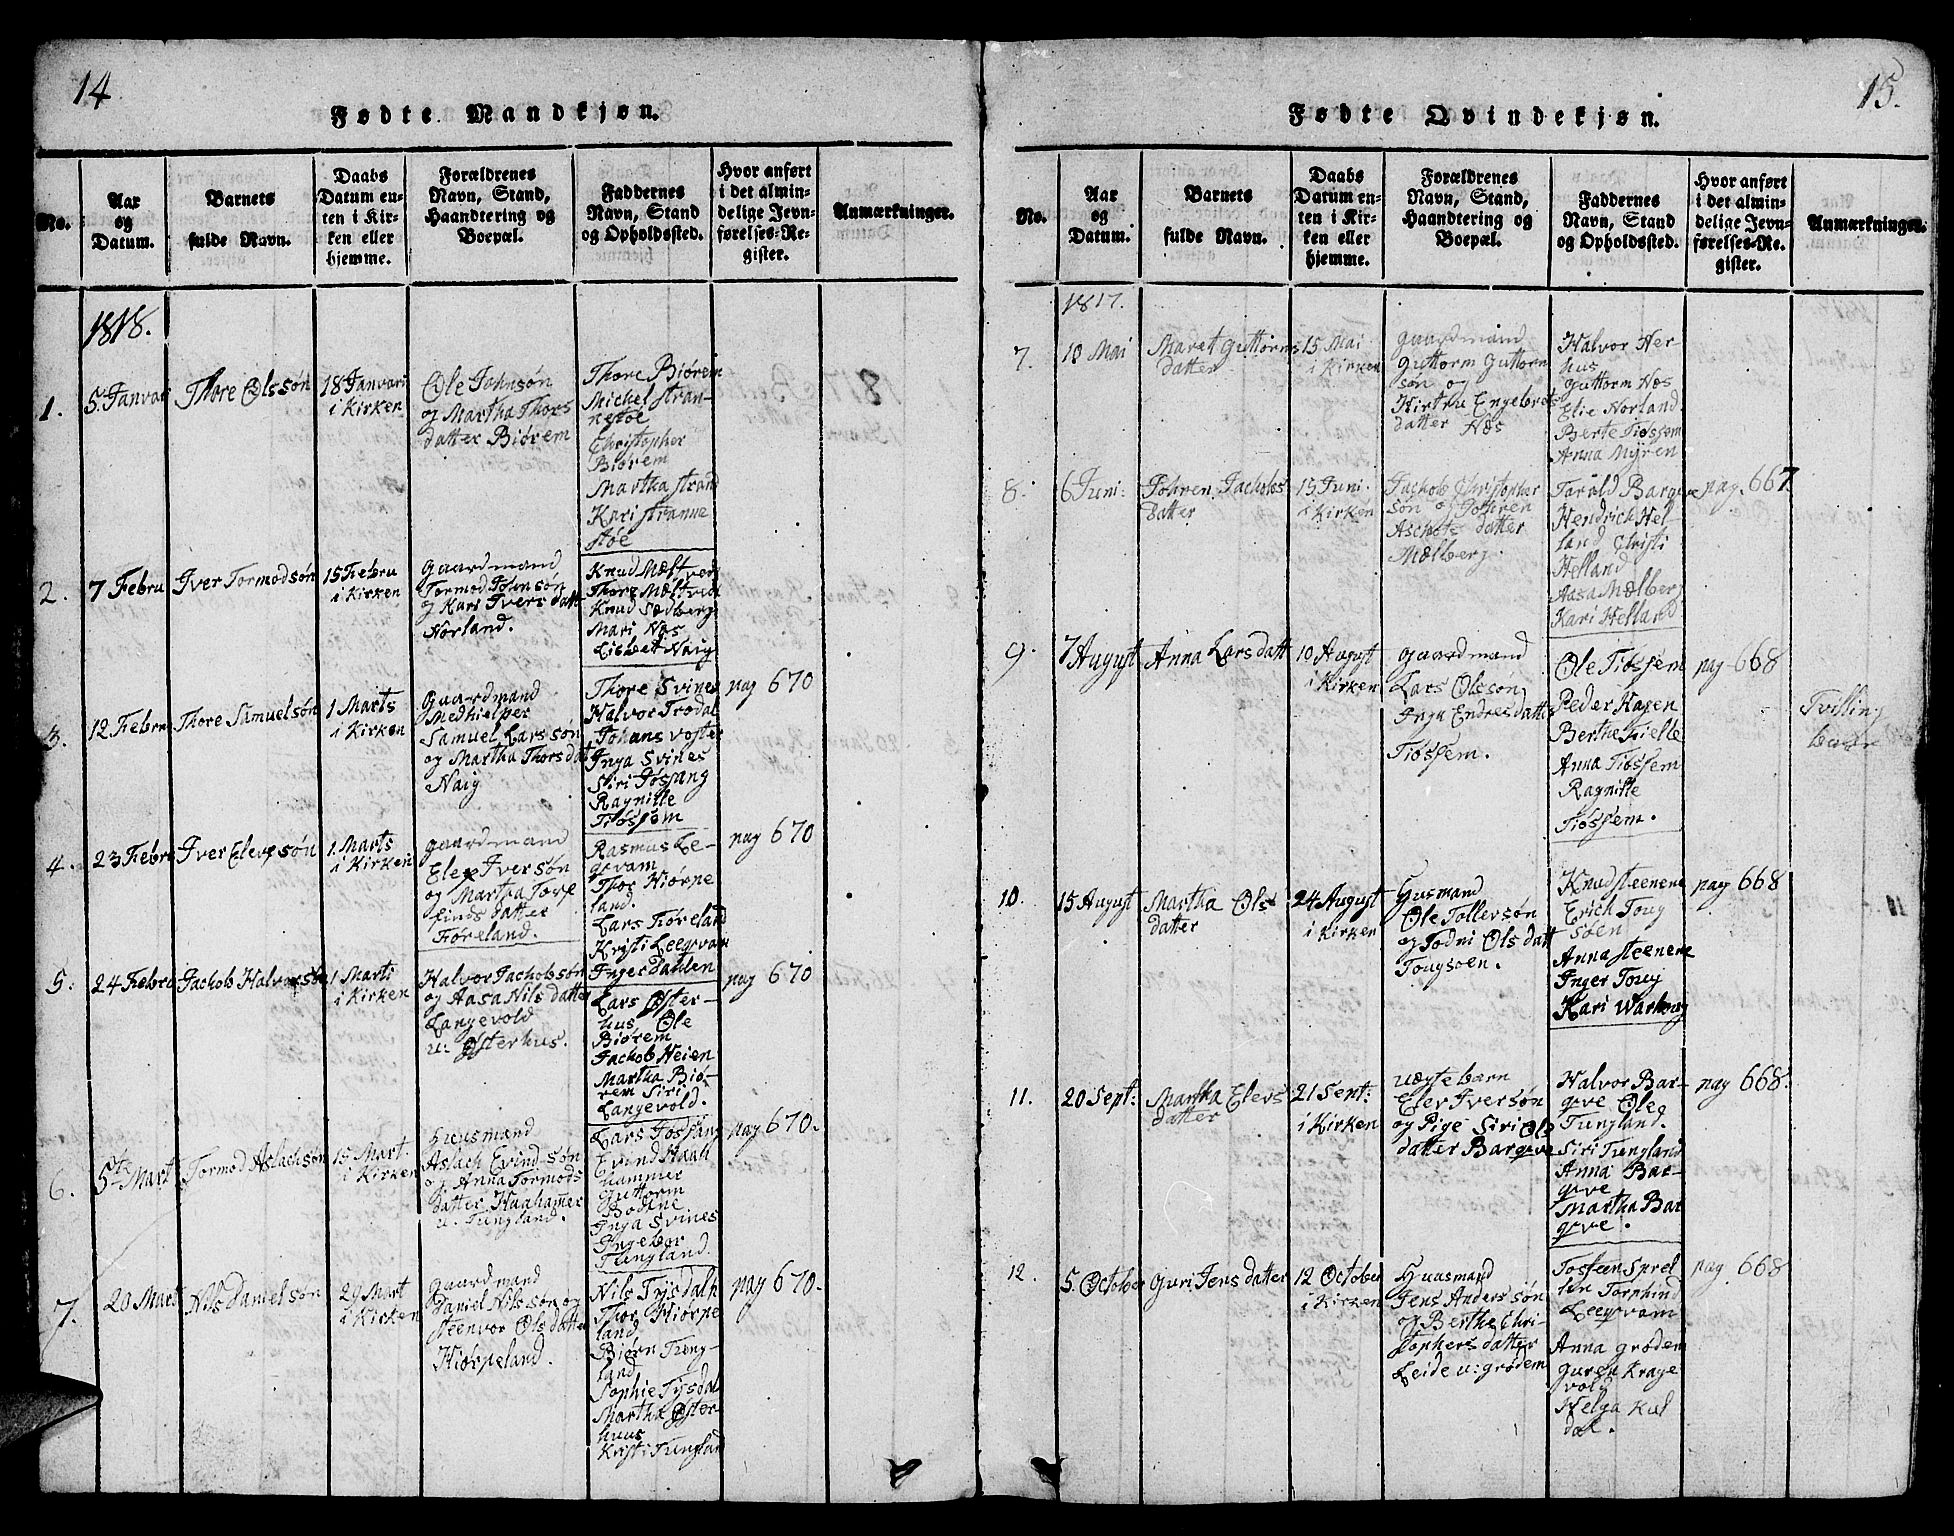 14
Fødte Mandkjøn.
No.
Aar
og
Datum.
Barnets
fulde Navn.
Daabs
Datum en-
ten i Kir-
ken eller
hjemme.
Forældrenes
Navn, Stand,
Haandtering og
Boepæl.
Faddernes
Navn, Stand
og Opholdssted.
Hvor anført
i det almin-
delige Jevn-
førelses-Re-
gister.
Anmærkninger.
1818.
1.
5. Januar
Thore Olssøn
18 Januari
i Kirken
Ole Johnsøn
og Martha Thors
datter Biørem
Thore Biørem
Michel Stran-
nestoe
Christopher
Biørem
Martha Strand
Kari Stranne
støe
2.
7 Febru
Iver Tormodsøn
15 Febru
i Kirken
gaardmand
Tormod Johnsøn
og Kari Ivers datt
Norland.
Knud Mæltved
Thore Mæltved
Knud Sædberg
Mari Næs
Lisbet Naig
3.
12 Febru
Thore Samuelsøn
1 Marts
i Kirken
Gaardmand
Medhielper
Samuel Larssøn
og Martha Thorsdat
Naig
Thore Svines
Halvor Trodal
Johans vogter
Inga Svines
Siri Jøssang
Ragnille
Tiøssem
pag 670
4.
23 Febru
Iver Elevsøn
1. Marts
i Kirken
gaardmand
Elev Iversøn
og Martha Tore
finds datter
Føreland.
Rasmus Le-
qvam
Thor Hiørpe
land.
Lars Føreland
Kristi Leeqvam
Inger Dahlen
pag 670
5.
24 Febru
Jachob Halvorsøn
1 Marti
i Kirken
Halvor Jachobsøn
og Aasa Nils datter
Langevold
u: Østerhus.
Lars Øster-
hus, Ole
Biørem
Jachob Heien
Martha Biø-
rem Siri
Langevold.
pag 670
6.
5te Mart
Tormod Aslachsøn
15 Mart.
i Kirken
Huusmand
Aslach Evindsøn
og Anna Tormods
datter Haahamer
u. Tungland.
Lars Jossang
Evind Haah
hammer
Guttorm
Bodne
Inga Svines
Ingebor
Tungland.
pag 670.
7.
20 Mart
Nils Danielsøn
29 Mart
i Kirken
gaardmand
Daniel Nilssøn og
Steenvor Olsdatter
Hiørpeland.
Nils Tysdahl
Thor Hiørpe
land,
Biørn Tung-
land
Sophie Tysdal
Martha Øster-
huus
Kristi Tungland
pag 670.
15.
Fødte Qvindekjøn.
No.
Aar
og
Datum.
Barnets
fulde Navn.
Daabs
Datum en-
ten i Kir-
ken eller
hjemme.
Forældrenes
Navn, Stand,
Haandtering og
Boepæl.
Faddernes
Navn, Stand
og Opholdssted.
Hvor anført
i det almin-
delige Jevn-
førelses-Re-
gister.
Anmærkninger.
1817.
7.
10 Mai
Maret Guttorms
datter
15 Mai
i Kirken
gaardmand
Guttorm Guttorm
søn og
Kirtru Engebrets
datter Næs
Halvor Her-
hus
Guttorm Næs
Elie Norland
Berte Tiøssem
Anna Myren
8.
6 Juni:
Johren Jachobs
datter
15 Juni.
i Kirken
Jachob Christopher
søn og Johren
Aschots datter
Mælberg.
Tarald Bargeve
Hendrich Hel-
land Christi
Helland
Aasa Mælberg
Kari Helland
pag. 667.
9.
7 August
Anna Larsdatt
10 August
i Kirken
gaardmand
Lars Olssøn
Inga Endresdatter
Tiøssem.
Ole Tiøssem
Peder Hagen
Berthe Fielle
Anna Tiøssem
Ragnille
Tiøssem.
pag 668
Tvilling
børn
10.
15 August
Martha Ols
datter
24 August
i Kirken
Husmand
Ole Tollersøn
og Todni Ols datt
Tougsoen.
Knud Steenene
Erich Toug
søen
Anna Steenene
Inger Toug
Kari Warhoug
pag 668
11.
20 Sept:
Martha Elevs
datter
21 Sept:
i Kirken
uægte barn
Elev Iversøn
og Pige Siri Ols
datter Bargeve
Halvor Bar-
geve Ole
Tungland.
Siri Tungland
Anna Bar-
geve
Martha Bar
geve.
pag 668.
12.
5. October
Guri Jens datter
12 October
i Kirken
Huusmand
Jens Anderssøn
og Berthe Chri-
stophers datter
Leide u: Grødem
Tosteen Sprel
len Torphind
Leeqvam
Anna Grødem
Guren Krage
vold
Helga Kal
dal.
pag. 668